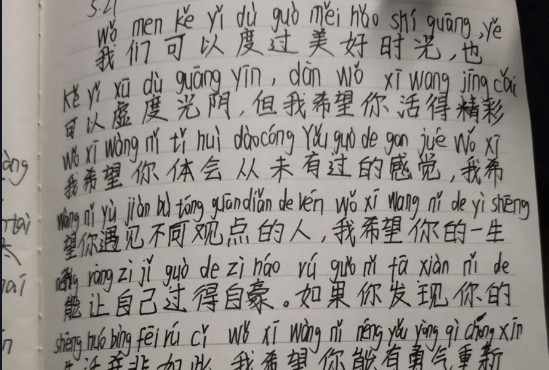 5.21
wǒ men kě yǐ dù guò měi hǎo shí guāng, yě
我们可以度过美好时光,也
kě yǐ xū dù guāng yīn, dàn wǒ xī wang jīng cǎi
可以虚度光阴,但我希望你活得精彩
wǒ xī wàng nǐ tǐ huì dào cóng yǒu guò de gan jué wǒ xī
我希望你体会从未有过的感觉,我希
wàng nǐ yù jiàn bù tóng guān diǎn de rén wǒ xī wang nǐ de yì shēng
望你遇见不同观点的人,我希望你的一生
néng rang zì jǐ guò de zì háo rú guǒ nǐ fā xiàn nǐ de
能让自己过得自豪。如果你发现你的
shēng huó bìng fēi rú cǐ wǒ xī wàng nǐ néng yǒu yong qì chóng xīn
生活并非如此,我希望你能有勇气重新